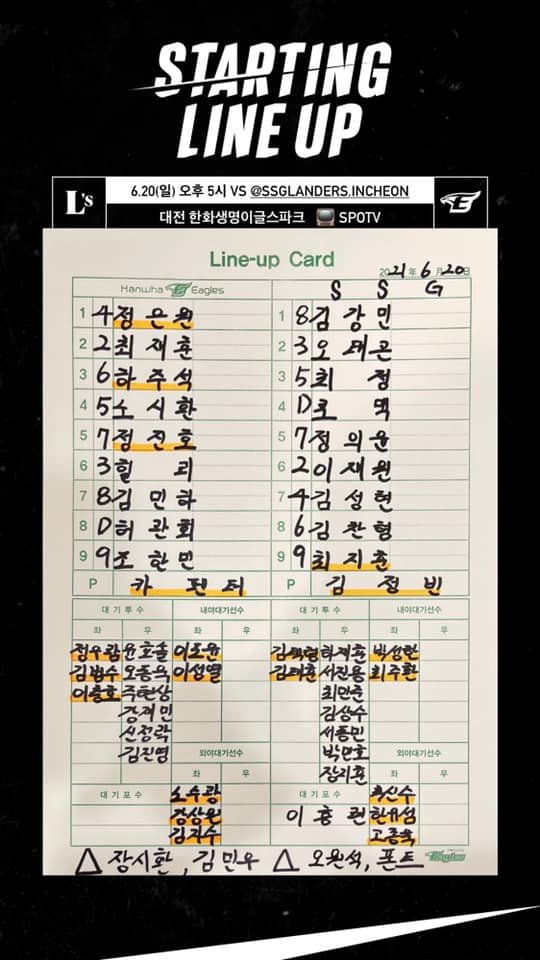 STARTING
LINE UP
L's
6.20(일) 오후 5시 VS @SSGLANDERS.INCHEON
대전 한화생명이글스파크 SPOTV
Line-up Card
2021年 6月 20日
Hanwha Eagles S S G
1 4 정은원 1 8 김강민
2 2 최재훈 2 3 오태곤
3 6 하주석 3 5 최정
4 5 노시환 4 D 로맥
5 7 정진호 5 7 정의윤
6 3 힐리 6 2 이재원
7 8 김민하 7 4 김성현
8 D 허관회 8 6 김찬형
9 9 조한민 9 9 최지훈
P 카펜터 P 김정빈
대기투수 내야대기선수 대기투수 내야대기선수
좌 우 좌 우 좌 우 좌 우
정우람 윤호솔 이도윤 김택형 하재훈 박성한
김범수 오동욱 이성열 김태훈 서진용 최주환
이충호 주현상 최민준
강재민 김상수
신정락 서동민
김진영 외야대기선수 박민호 외야대기선수
좌 우 장지훈 좌 우
대기포수 노수광 대기포수 추신수
장상원 이흥련 한유섬
김지수 고종욱
△ 장시환, 김민우 △ 오원석, 폰트
Eagles